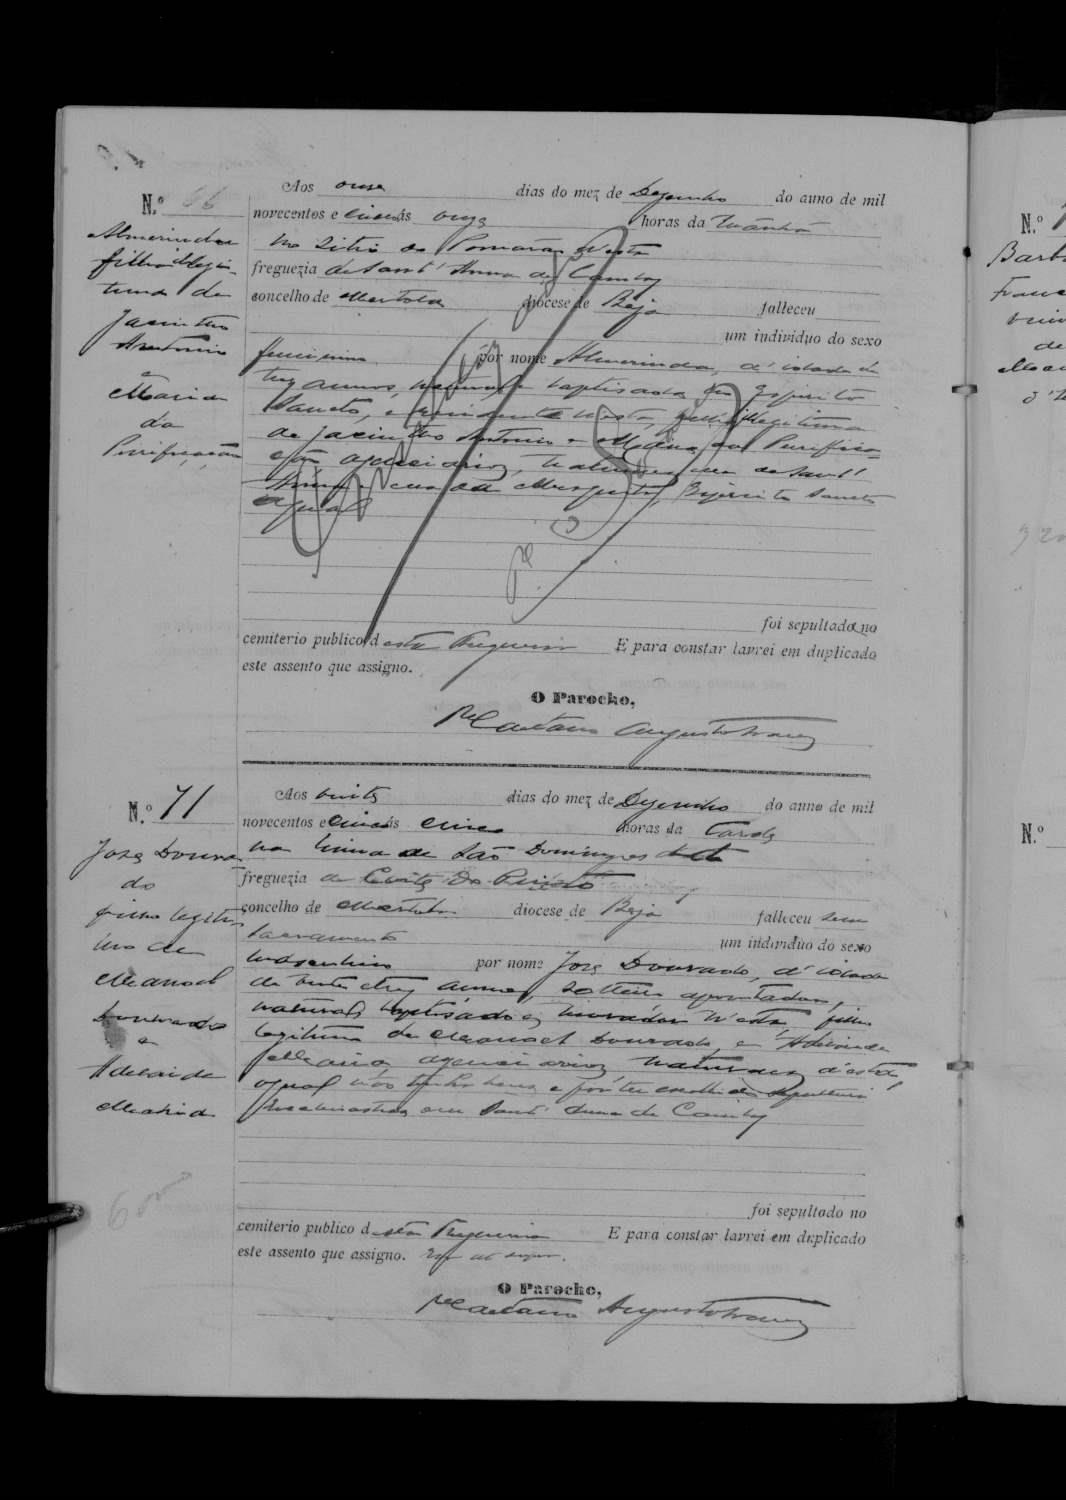 N.º 66
Almerinda
filha illegi-
tima de
Jacintho
Antonio
e
Maria
da
Purificação
Aos onze dias do mez de Dezembro do anno de mil
novecentos e cinco ás onze horas da manhã
no Sitio do Pomarão d'esta
freguezia de Sant'Anna de Cambas
concelho de Mertola diocese de Beja falleceu
um individuo do sexo
feminino por nome Almerinda, d'idade de
tres annos, natural e baptisada em Espirito
Sancto, e residente n'esta, filha illegitima
de Jacintho Antonio e Maria da Purifica-
ção
Espirito Sancto
a qual
foi sepultada no
cemiterio publico d'esta freguezia E para constar lavrei em duplicado
este assento que assigno.
O Parocho,
Caetano Augusto
N.º 71
José Doura-
do
filho legiti-
mo de
Manoel
Dourado
e
Adelaide
Maria
600
Aos vinte dias do mez de Dezembro do anno de mil
novecentos e cinco ás cinco horas da tarde
na Mina de São Domingos
freguezia de Corte do Pinto
concelho de Mertola diocese de Beja falleceu sem
sacramentos um individuo do sexo
masculino por nome José Dourado, d'idade
de vinte e tres annos, solteiro apontador,
natural, baptisado e morador n'esta, filho
legitimo de Manoel Dourado, e Adelaide
Maria, naturaes d'esta,
o qual não
em Sant'Anna de Cambas
foi sepultado no
cemiterio publico d'esta freguezia E para constar lavrei em duplicado
este assento que assigno. Era ut supra.
O Parocho,
Caetano Augusto
N.º
Barb
N.º